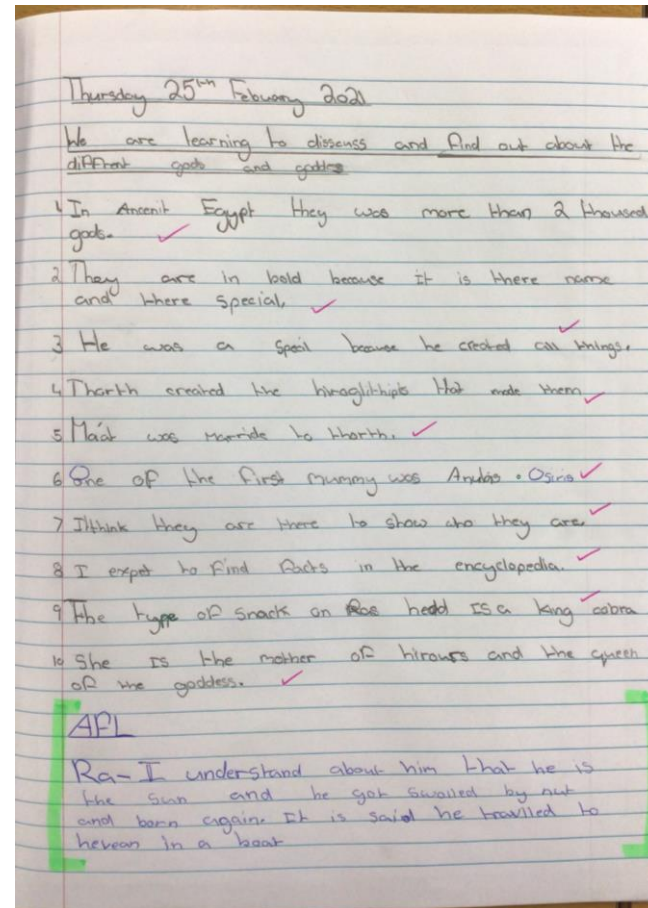 Thursday 25th Febuary 2021
We are learning to disscuss and find out about the
diffrent gods and goddes
1 In Ancenit Egypt they was more than 2 thoused
gods.
2 They are in bold because it is there name
and there special,
3 He was a speil because he created all things.
4 Thorth created the hiroglithipts that made them
5 Ma'at was marride to thorth.
6 One of the first mummy was Anubis . Osiris
7 I think they are there to show who they are.
8 I expet to find facts in the encyclopedia.
9 The type of snack on Ras hedd Is a king cobra
10 She Is the mother of hirours and the queen
of the goddess.
AFL
Ra- I understand about him that he is
the sun and he got swalled by nut
and born again. It is said he travlled to
hevean In a boat